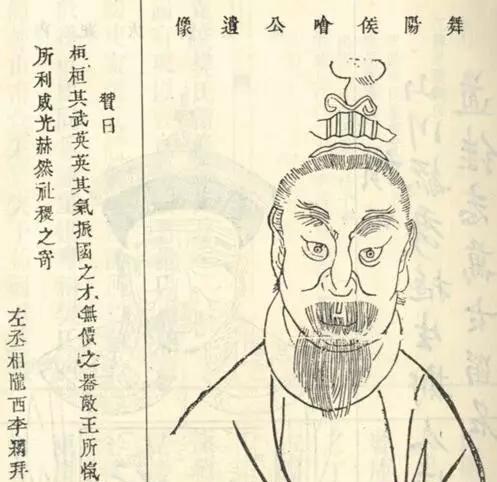 舞陽侯噲公遺像
贊曰
桓桓其武英英其氣振國之才無價之器敵王所愾
所利威光赫然社稷之寄
左丞相隴西李拜